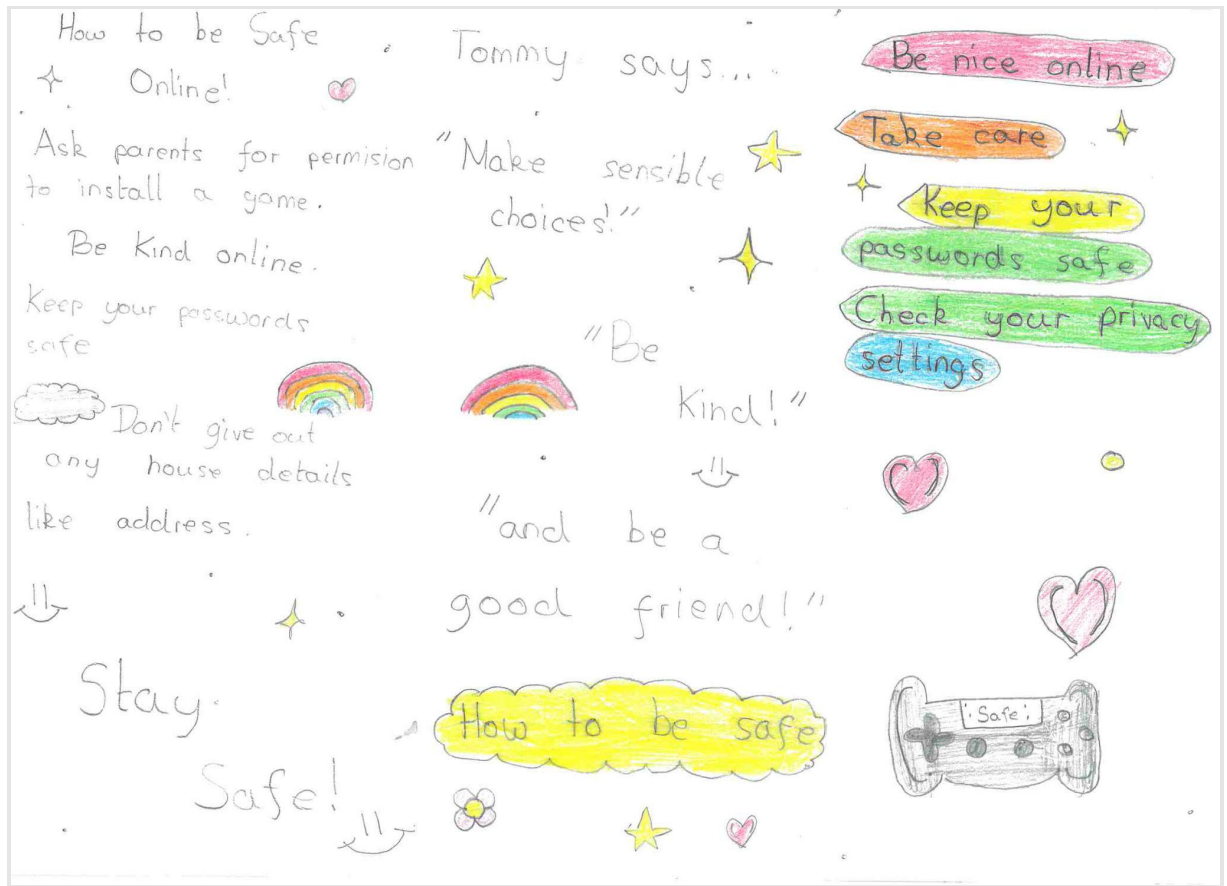 How to be Safe
Online!
Ask parents for permision
to install a game.
Be Kind online.
Keep your passwords
safe
Don't give out
any house details
like address.
Stay
Safe!
Tommy says...
"Make sensible
choices!"
"Be
Kind!"
"and be a
good friend!"
How to be safe
Be nice online
Take care
Keep your
passwords safe
Check your privacy
settings
Safe